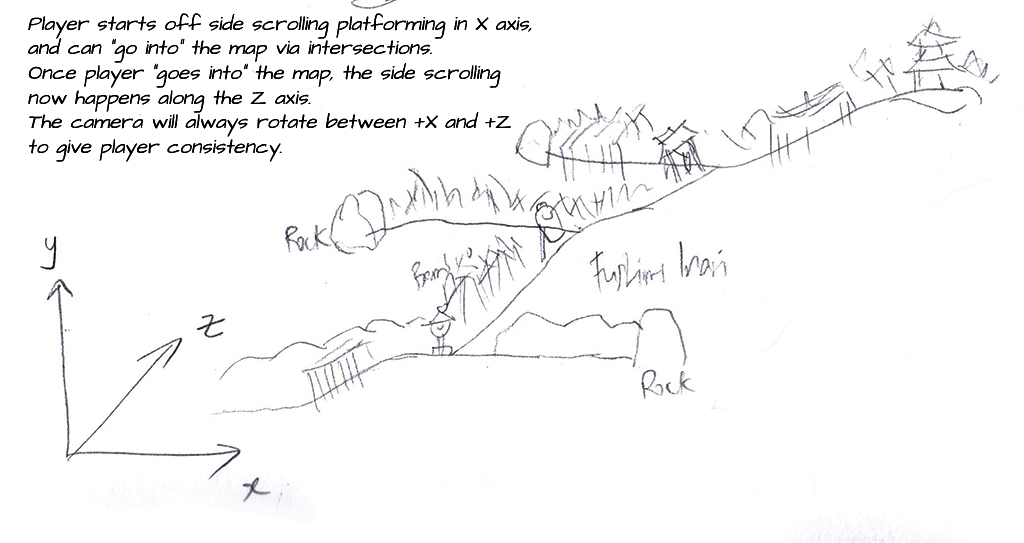 Player starts off side scrolling platforming in X axis,
and can "go into" the map via intersections.
Once player "goes into" the map, the side scrolling
now happens along the Z axis.
The camera will always rotate between +X and +Z
to give player consistency.
Rock
y
Z
x
Fushimi Inari
Rock